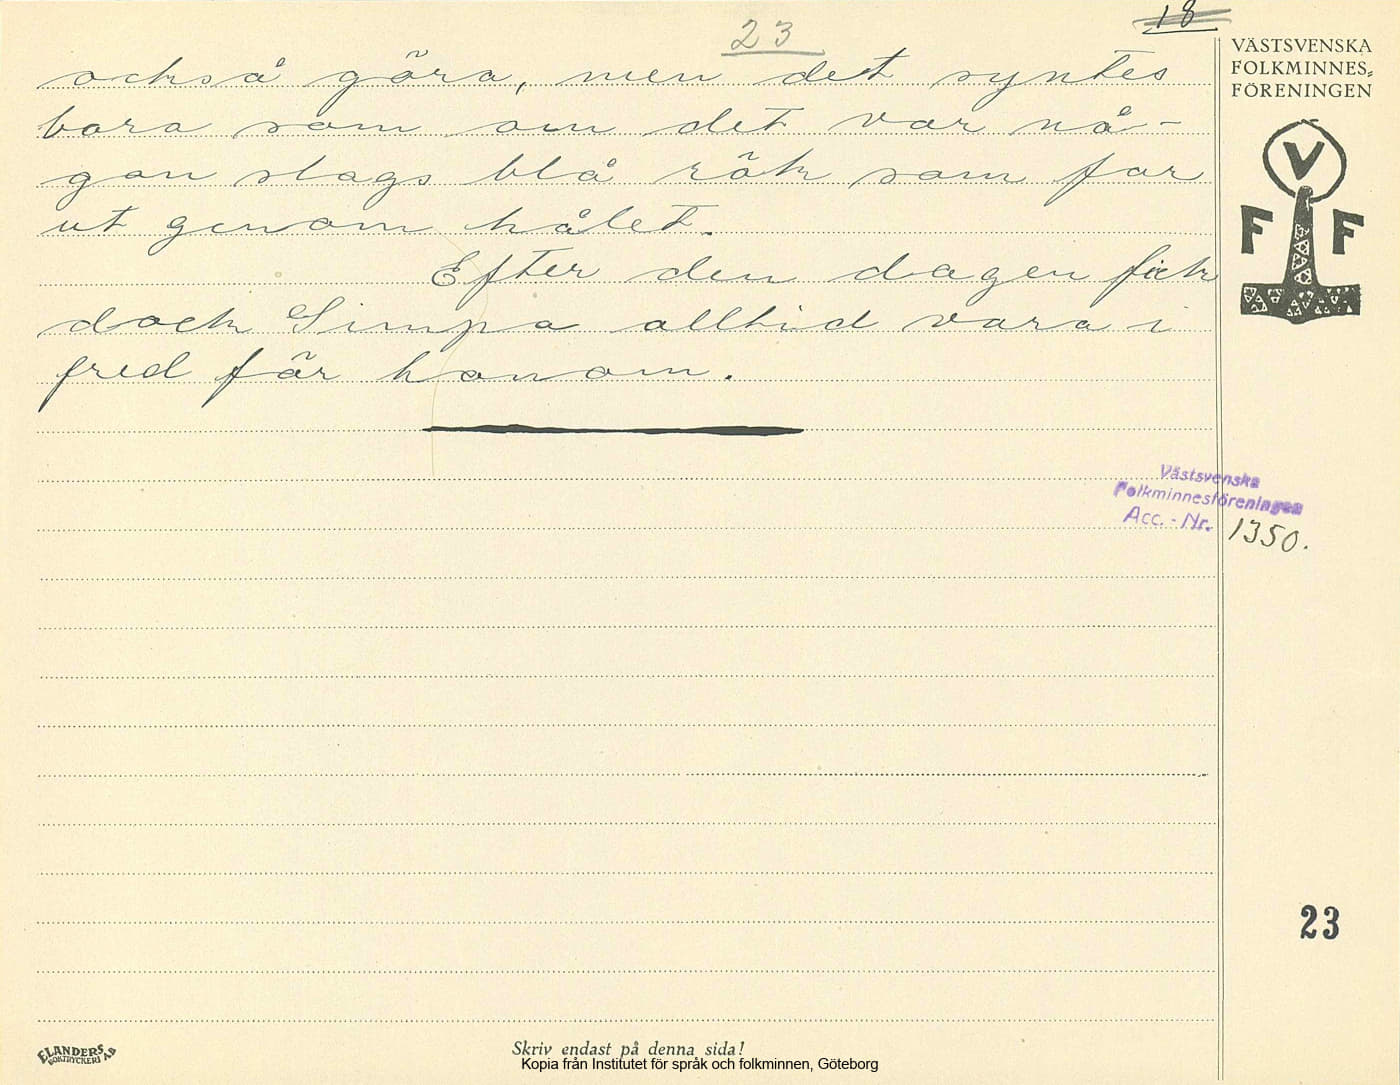 23
18
också göra, men det syntes
bara som om det var nå-
gon slags blå rök som for
ut genom hålet.
Efter den dagen fick
dock Simpa alltid vara i
fred för honom.
VÄSTSVENSKA
FOLKMINNES-
FÖRENINGEN
V
F F
Västsvenska
Folkminnesföreningen
Acc. - Nr. 1350.
23
ELANDERS
BOKTRYCKERI AB
Skriv endast på denna sida!
Kopia från Institutet för språk och folkminnen, Göteborg